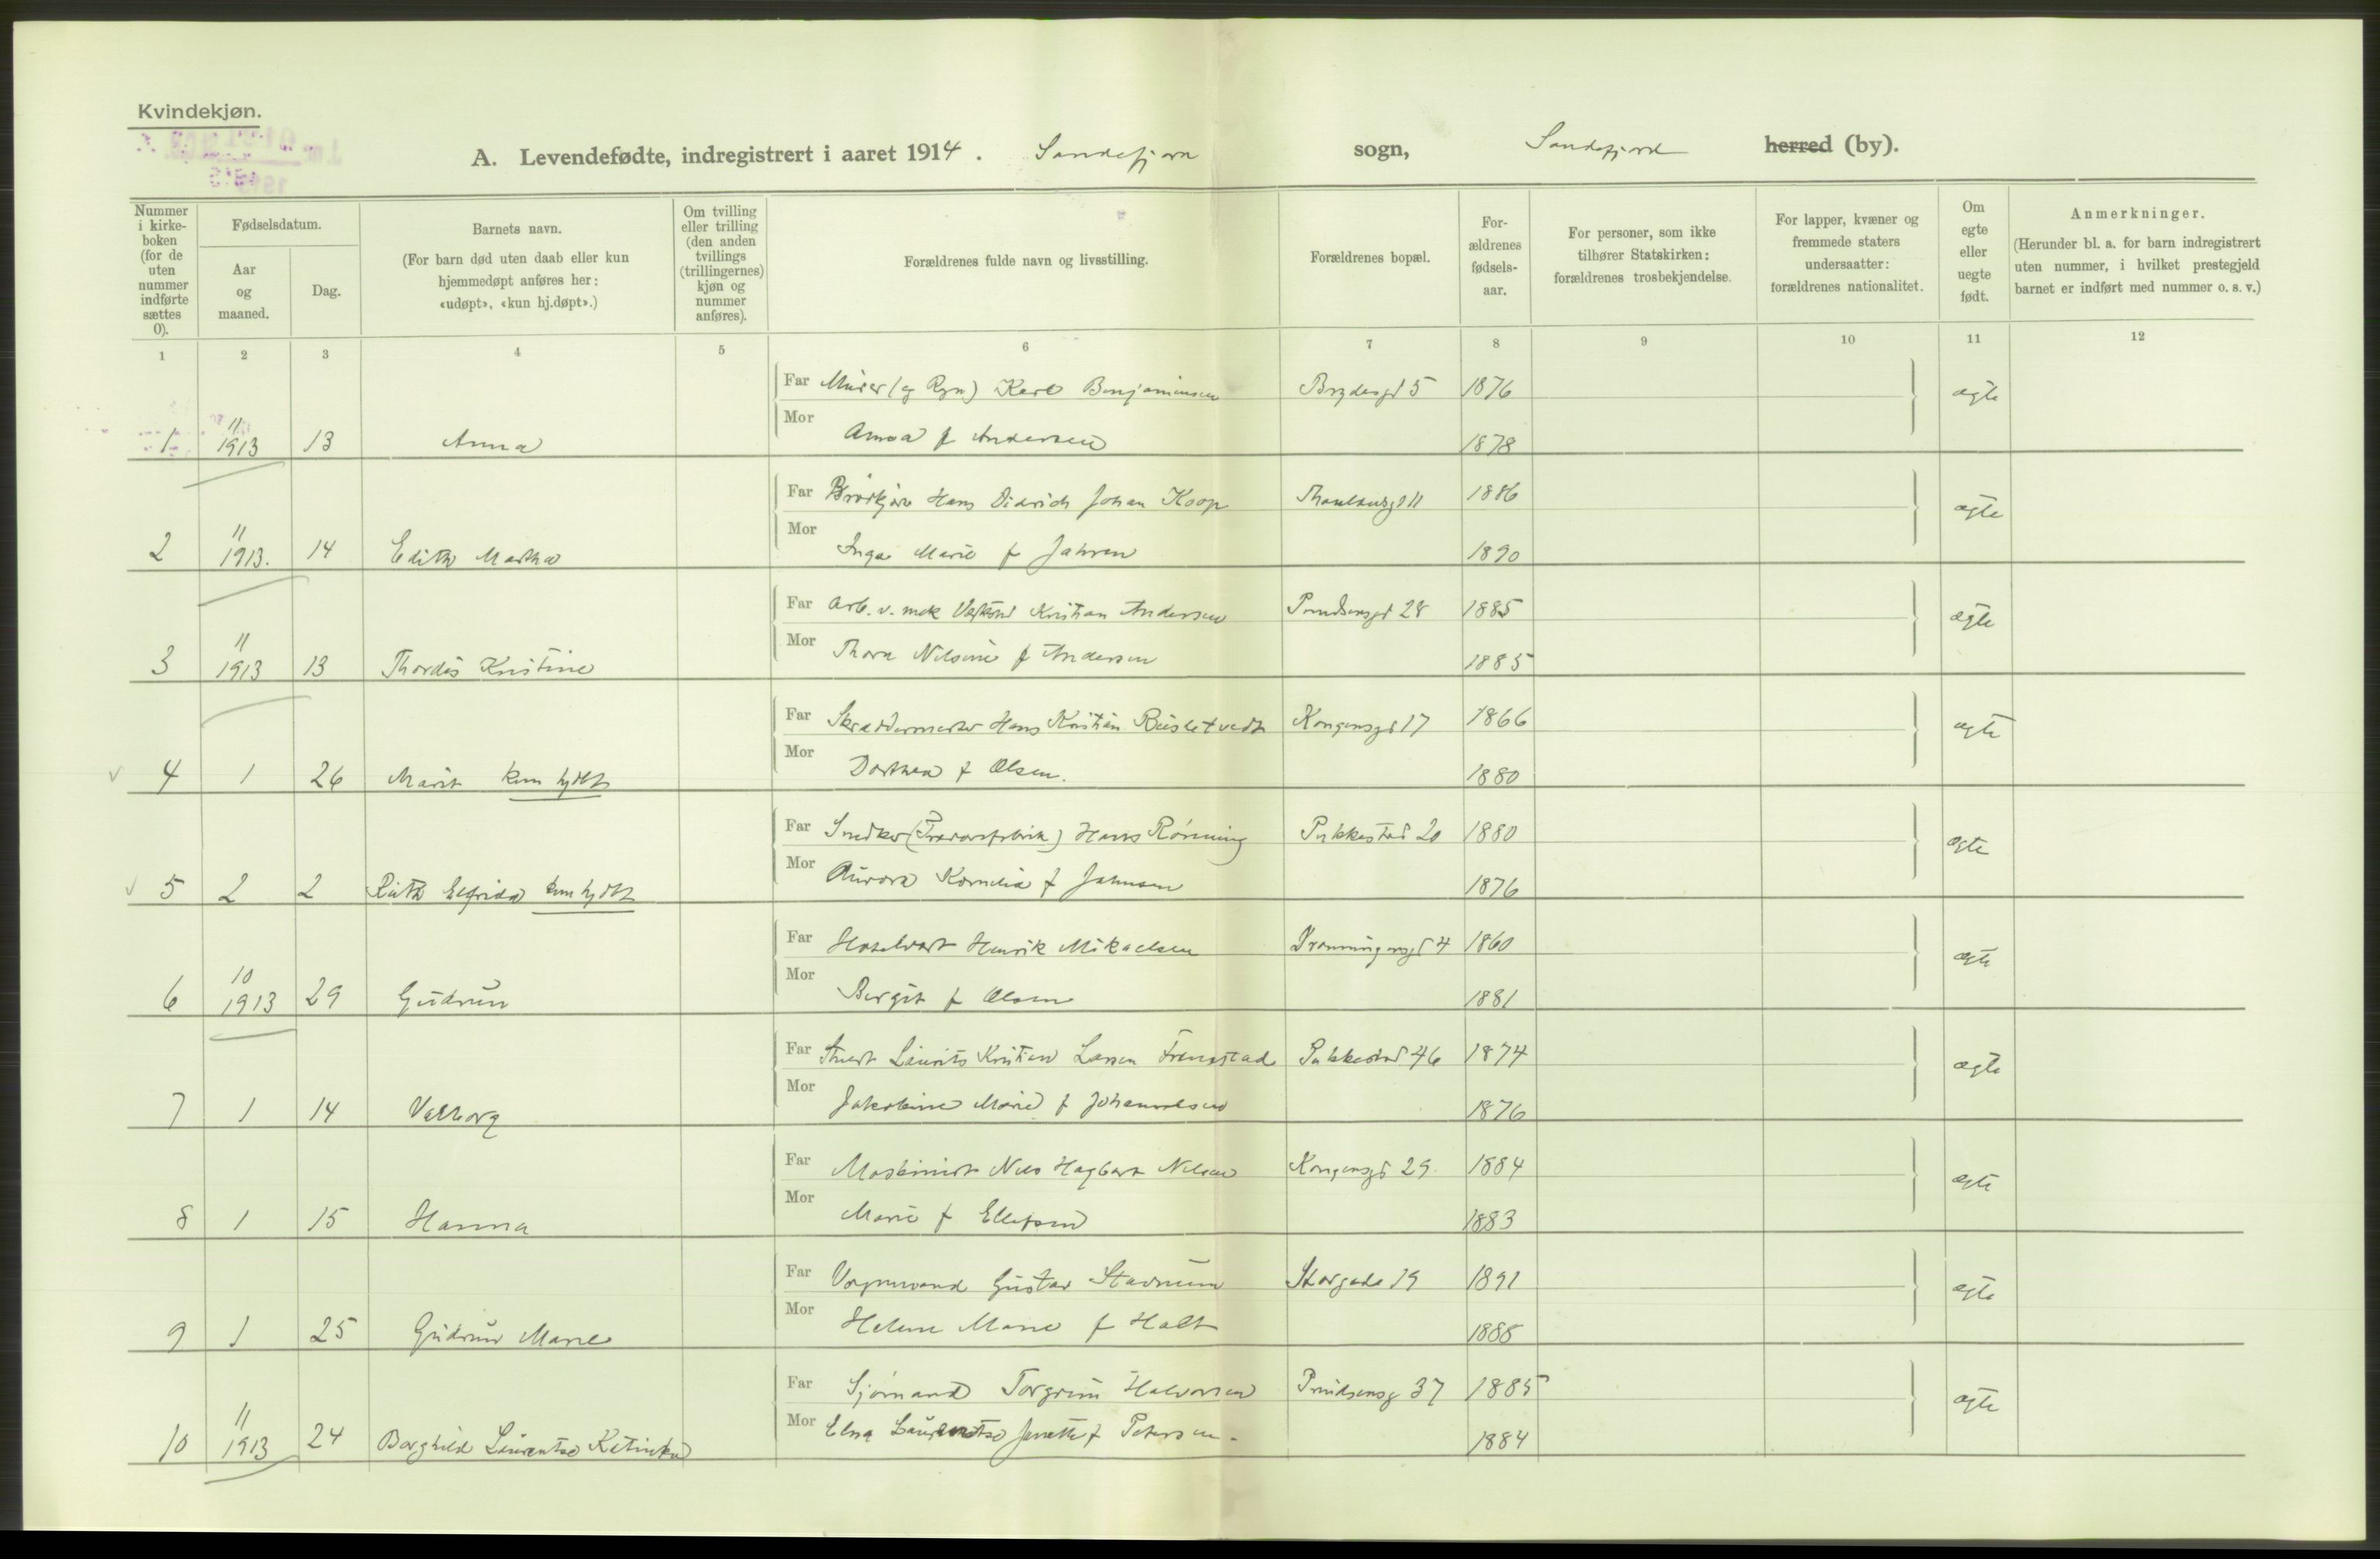 Kvindekjøn.
A. Levendefødte, indregistrert i aaret 1914. Sandefjord sogn, Sandefjord herred (by).
Nummer i kirke-boken (for de uten nummer indførte sættes 0).
Fødselsdatum.
Aar og maaned.
Dag.
Barnets navn.
(For barn død uten daab eller kun hjemmedøpt anføres her: «udøpt», «kun hj.døpt».)
Om tvilling eller trilling (den anden tvillings (trillingernes) kjøn og nummer anføres).
Forældrenes fulde navn og livsstilling.
Forældrenes bopæl.
For-ældrenes fødsels-aar.
For personer, som ikke tilhører Statskirken: forældrenes trosbekjendelse.
For lapper, kvæner og fremmede staters undersaatter: forældrenes nationalitet.
Om egte eller uegte født.
Anmerkninger.
(Herunder bl. a. for barn indregistrert uten nummer, i hvilket prestegjeld barnet er indført med nummer o. s. v.)
1 2 3 4 5 6 7 8 9 10 11 12
Far Murer (eg Rgn) Karl Benjaminsen Brydesgt 5 1876 egte
1 11 1913 13 Anna Mor Anna f Andersen 1878
Far Hans Didrich Johan Koop 11 1886 egte
2 11 1913. 14 Edith Martha Mor Inga Marie f Jahren 1890
Far Arb. v. mek Verksted Kristian Andersen Prindsensgt 28 1885 egte
3 11 1913 13 Thordis Kristine Mor Thora Nilsine f Andersen 1885
Far Skreddermester Hans Kristian Ruisletvedt Kongensgt 17 1866 egte
4 1 26 Marit kun hjdøbt Mor Dorthea f Olsen. 1880
Far Snedker (Trævarefabrik) Hans Rönning Pukkestad 20 1880 egte
5 2 2 Ruth Elfrida kun hjdøbt Mor Aurora Kornelia f Jahnsen 1876
Far Hotelvert Henrik Mikaelsen Dronningensgt 4 1860 egte
6 10 1913 29 Gudrun Mor Bergit f Olsen 1881
Far Stuert Laurits Kristian Larsen Framnæs Pukkestad 46 1874 egte
7 1 14 Valborg Mor Jakobine Marie f Johannesen 1876
Far Maskinist Nils Hagbart Nilsen Kongensgt 29. 1884 egte
8 1 15 Hanna Mor Marie f Ellefsen 1883
Far Vognmand Gustav Stavnum Storgada 19 1891 egte
9 1 25 Gudrun Marie Mor Helene Marie f Holt 1888
Far Sjømand Torgrim Halvorsen Prindsensg 37 1885 egte
10 11 1913 24 Borghild Laurentse Katinka Mor Elna Laurentse Janette f Petersen. 1884